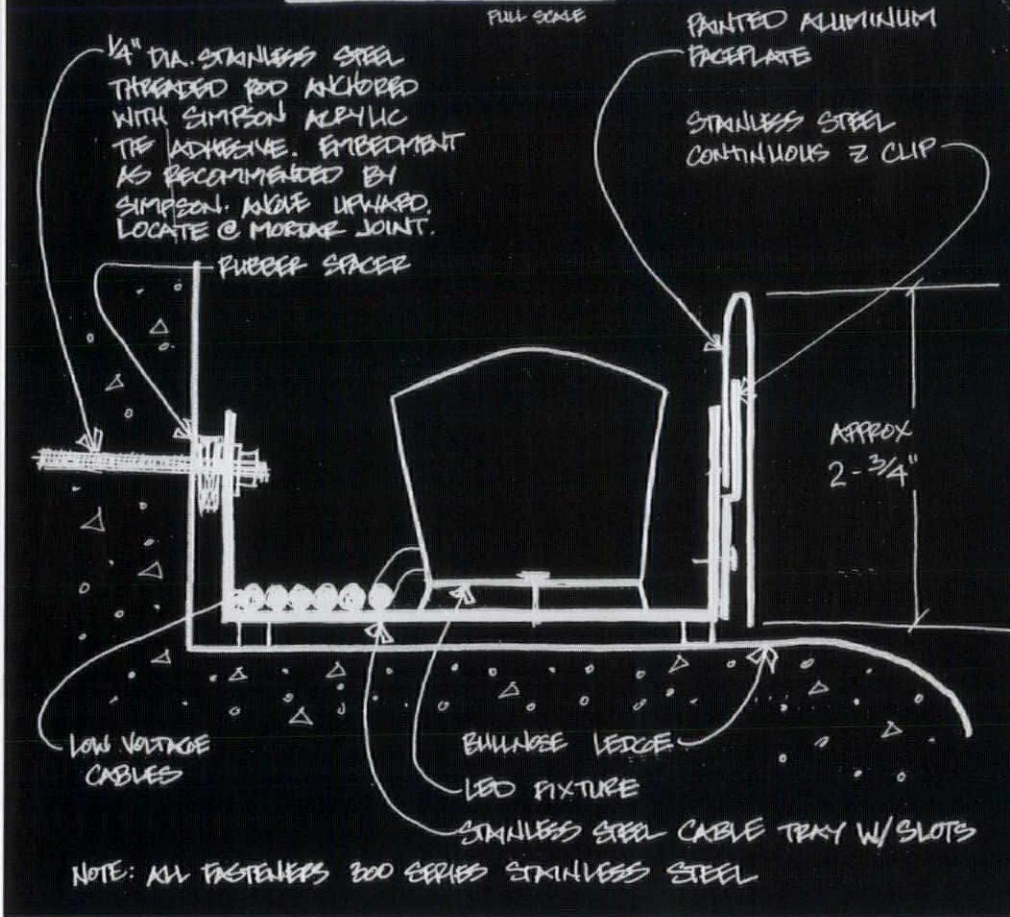 FULL SCALE
1/4" DIA. STAINLESS STEEL
THREADED ROD ANCHORED
WITH SIMPSON ACRYLIC
TIE ADHESIVE. EMBEDMENT
AS RECOMMENDED BY
SIMPSON. ANGLE UPWARD.
LOCATE @ MORTAR JOINT.
RUBBER SPACER
PAINTED ALUMINUM
FACEPLATE
STAINLESS STEEL
CONTINUOUS Z CLIP
APPROX
2-3/4"
LOW VOLTAGE
CABLES
BULLNOSE LEDGE
LED FIXTURE
STAINLESS STEEL CABLE TRAY W/SLOTS
NOTE: ALL FASTENERS 300 SERIES STAINLESS STEEL